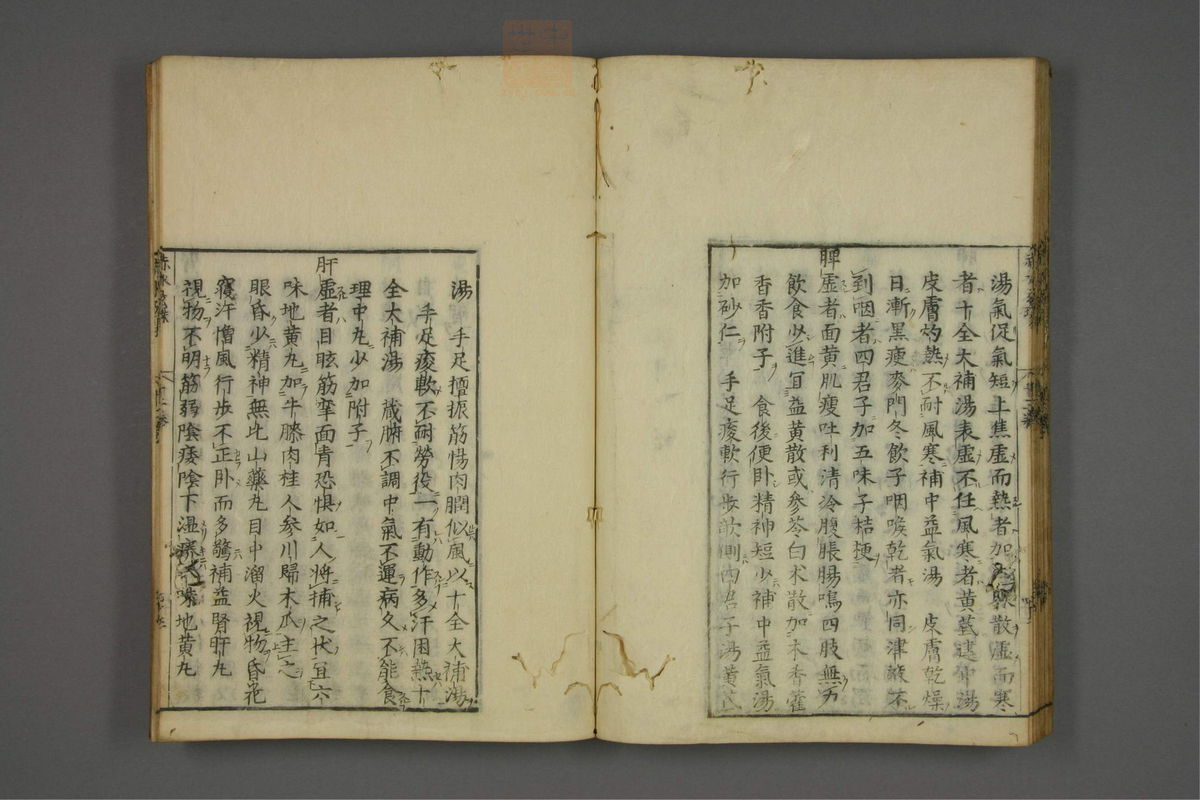 湯氣促氣短上焦虛而熱者加散虛而寒
者十全大補湯表虛不任風寒者黃茋建中湯
皮膚灼熱不耐風寒補中益氣湯　皮膚乾燥
日漸黑瘦麥門冬飲子咽喉乾者亦同津液不
到咽者四君子加五味子桔梗
脾虛者面黃肌瘦吐利清冷腹脹腸鳴四肢無力
飲食少進宜益黃散或參苓白朮散加木香藿
香香附子　食後便卧精神短少補中益氣湯
加砂仁　手足痠軟行步欹側四君子湯黃茋
湯　手足擅振筋惕肉瞤似風以十全大補湯
手足痠軟不耐勞役一有動作多汗困熱十
全大補湯　臟腑不調中氣不運病久不能食
理中丸少加附子
肝虛者目眩筋攣面青恐惧如人將捕之状宜六
味地黃丸加牛膝肉桂人參川歸木瓜主之
眼昏少精神無比山藥丸目中溜火視物昏花
寢汗憎風行步不正卧而多驚補益腎肝丸
視物不明筋弱陰痿陰下湿痒味地黃丸